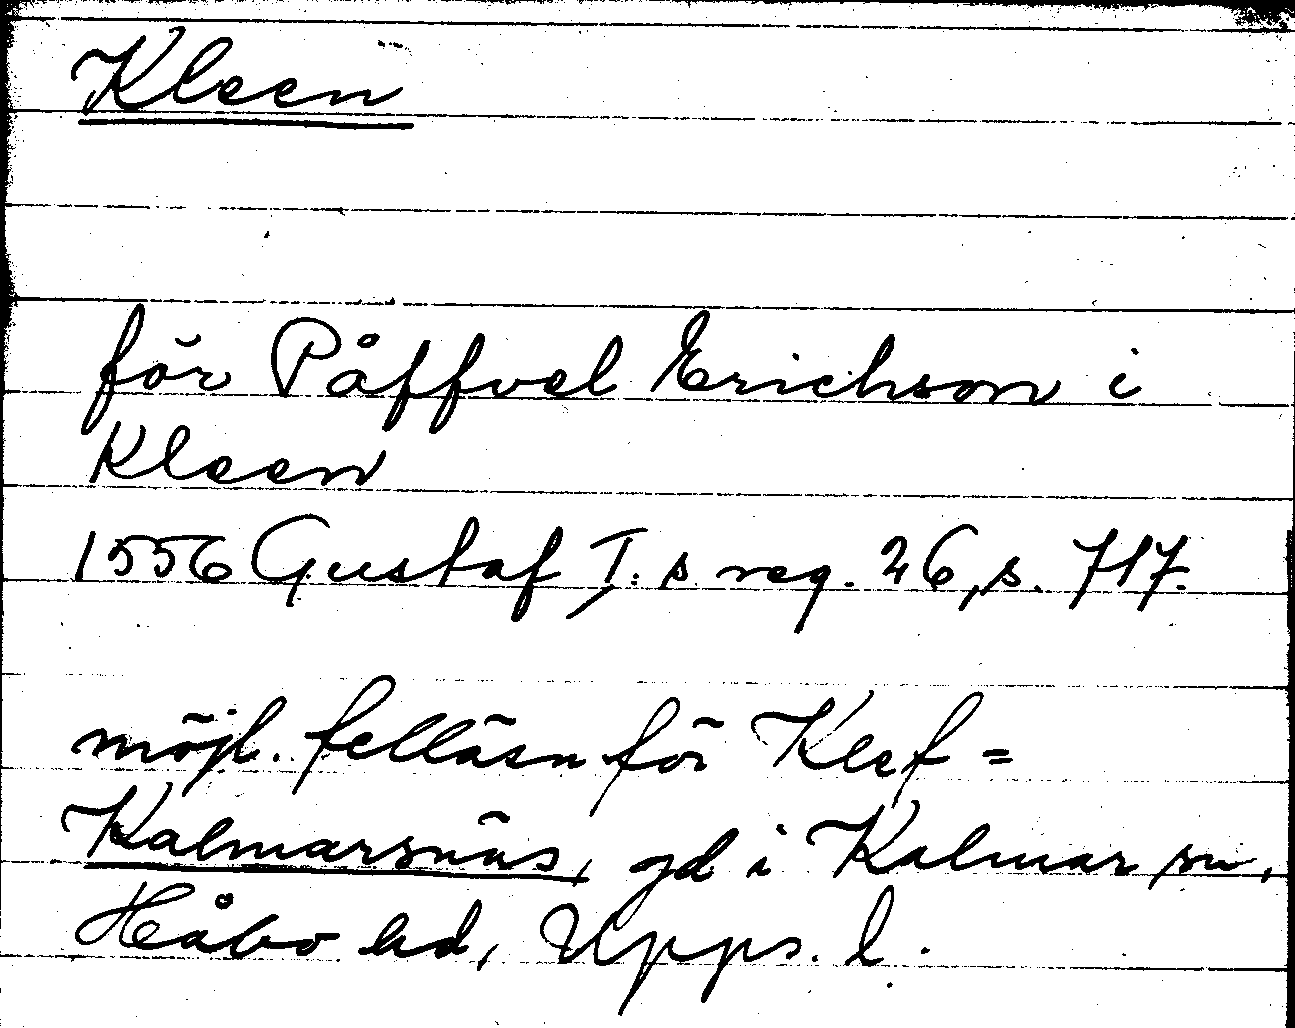 Kleen
för Påffvel Erichson i
Kleen
1556 Gustaf I:s reg. 26, s. 717.
möjl. felläsn för Klef =
Kalmarsnäs, gd i Kalmar sn,
Håbo hd, Upps. l.